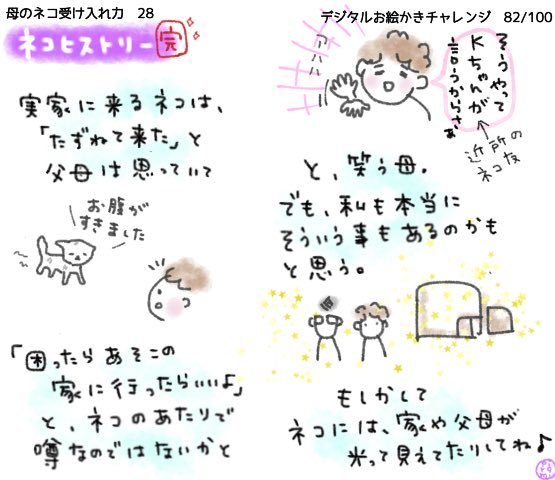 母のネコ受け入れ力 28
ネコヒストリー 完
実家に来るネコは、
「たずねて来た」と
父母は思っていて
お腹が
すきました
「困ったらあそこの
家に行ったらいいよ」
と、ネコのあたりで
噂なのではないかと
デジタルお絵かきチャレンジ 82/100
アハハハ
そうやって
Kちゃんが
言うからさぁ
近所の
ネコ友
と、笑う母。
でも、私も本当に
そういう事もあるのかも
と思う。
もしかして
ネコには、家や父母が
光って見えてたりしてね♪